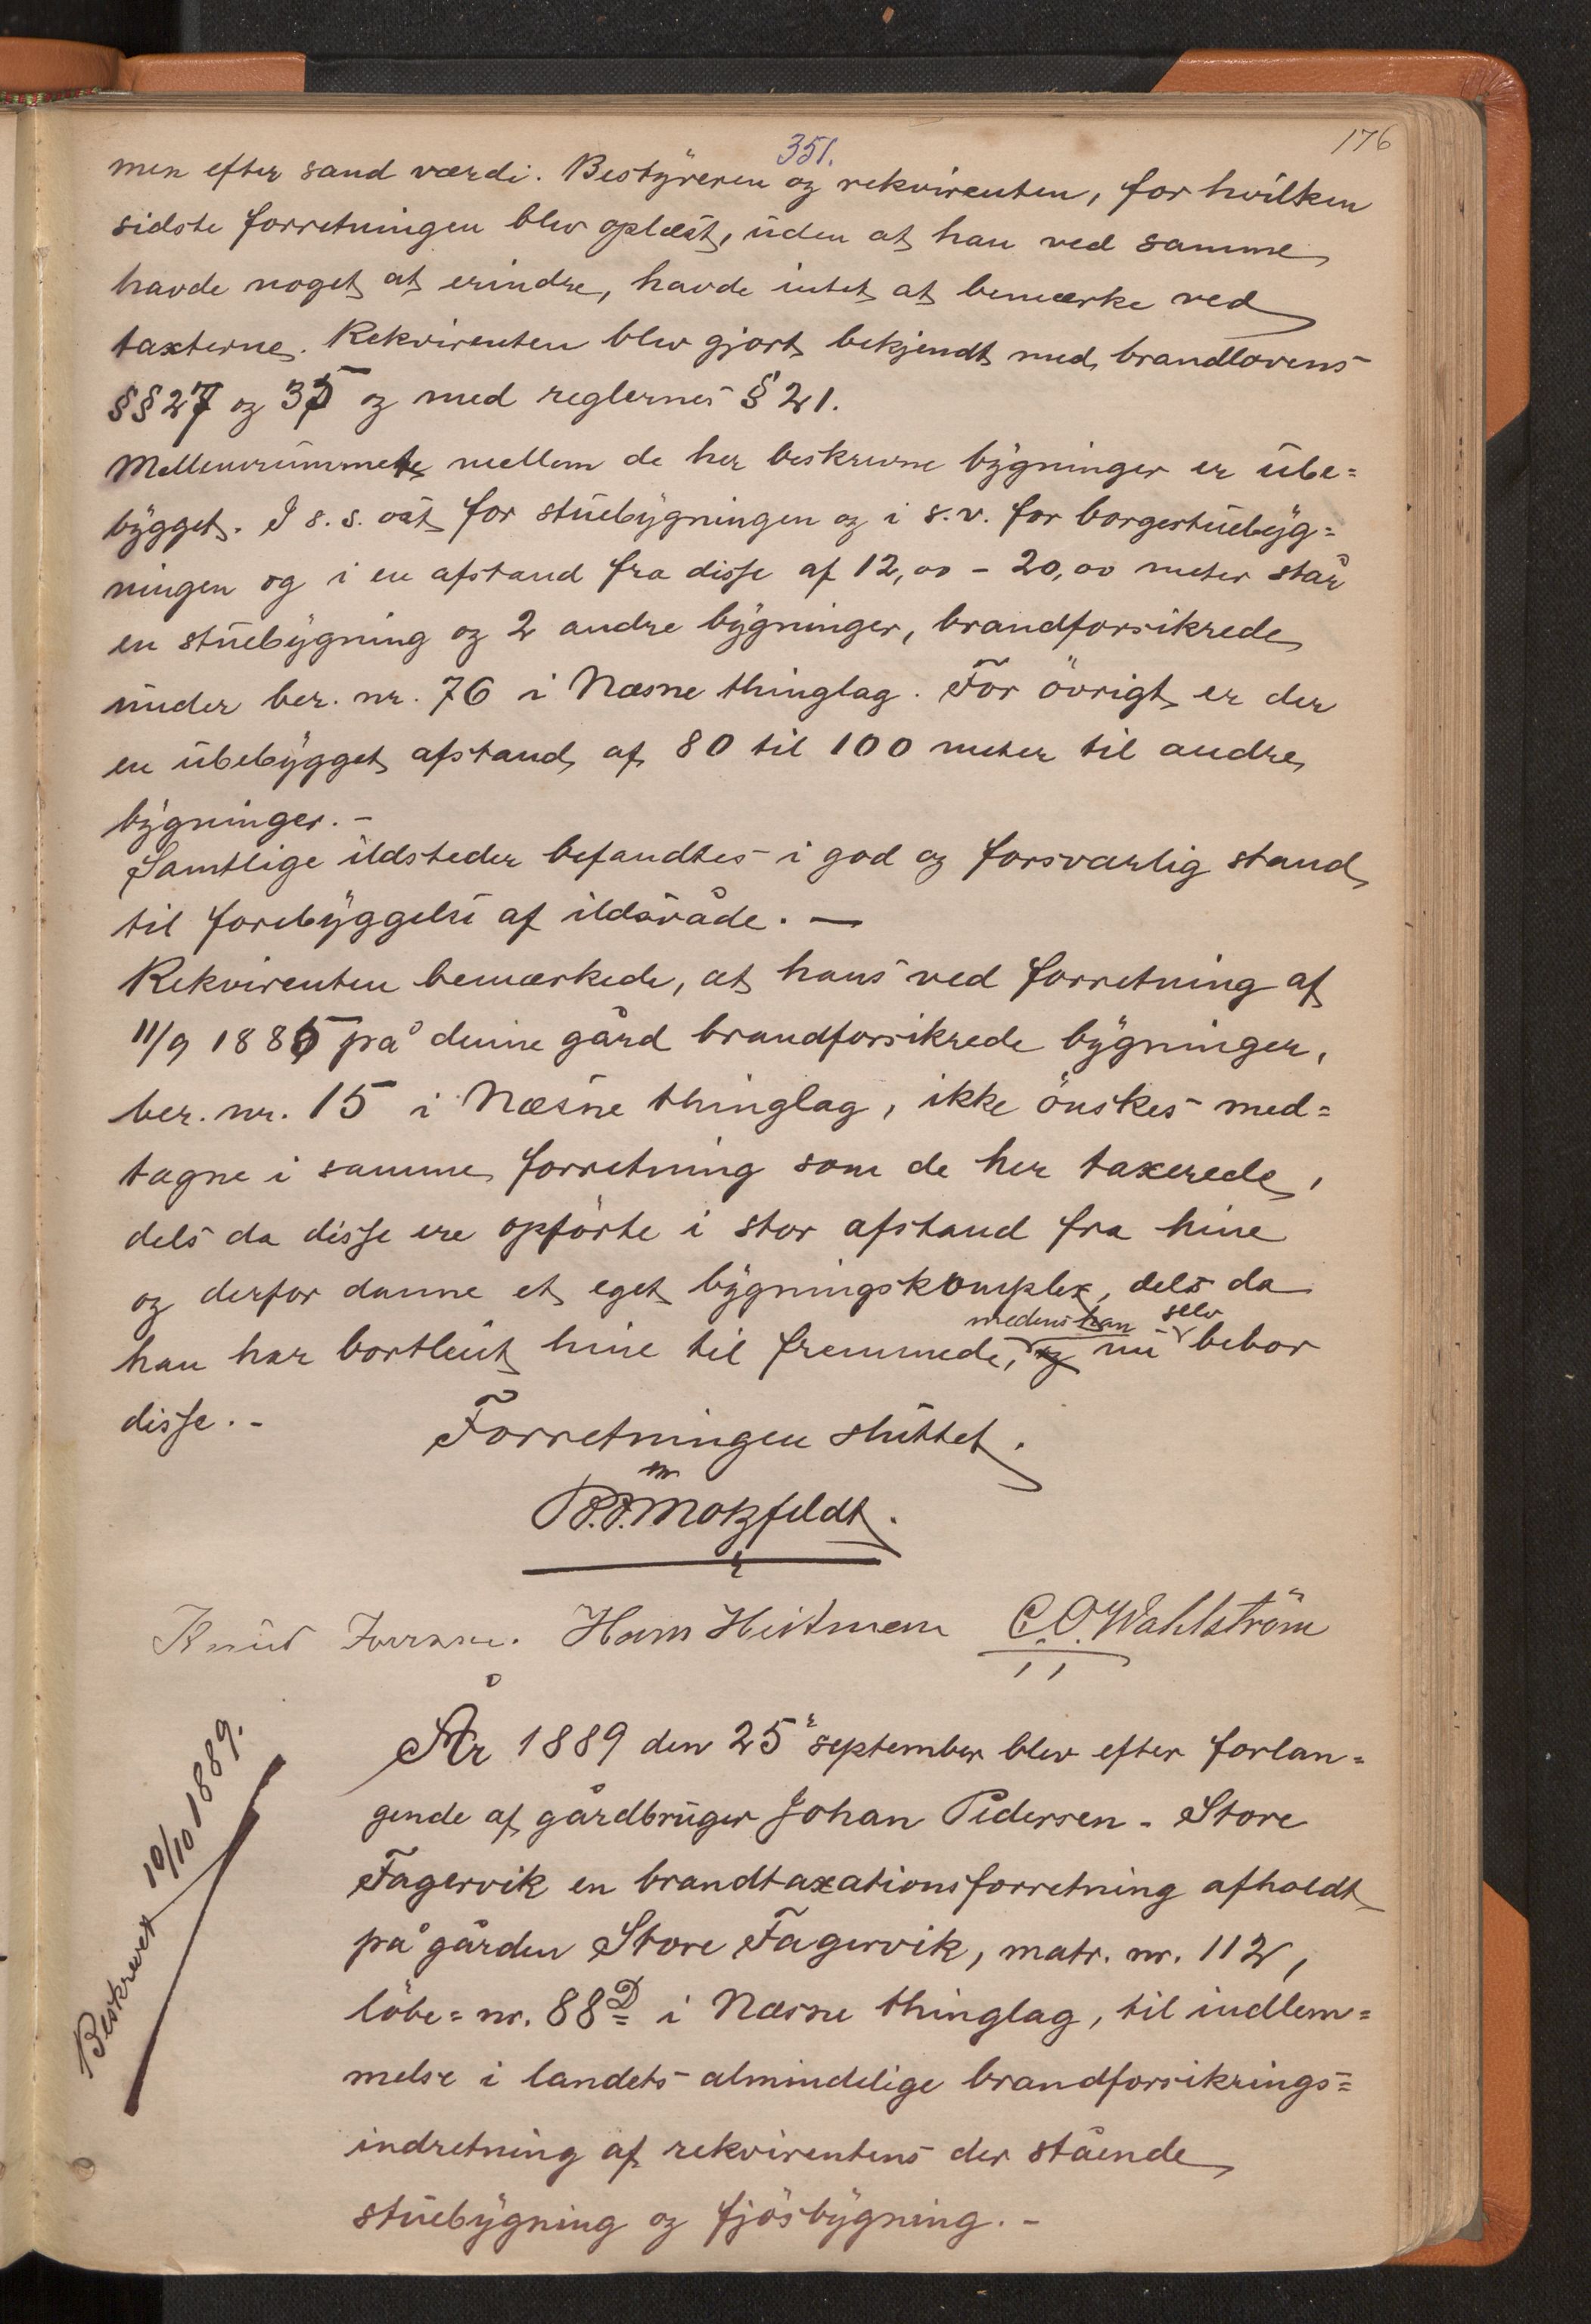 176
351.
men efter sand værdi. Bestyreren og rekvirenten, for hvilken
sidste forretningen blev oplæst, uden at han ved samme
havde noget at erindre, havde intet at bemærke ved
taxterne. Rekvirenten blev gjort bekjendt med brandlovens
§§ 27 og 35 og med reglernes § 21.
Mellemrummet mellem de her beskrevne bygninger er ube=
bygget. I s.s. ost for stuebygningen og i s.v. for borgestuebyg=
ningen og i en afstand fra disse af 12,00 - 20,00 meter står
en stuebygning og 2 andre bygninger, brandforsikrede
under ber. nr. 76 i Næsne thinglag. For övrigt er der
en ubebygget afstand af 80 til 100 meter til andre
bygninger. -
Samtlige ildsteder befandtes i god og forsvarlig stand
til forebyggelse af ildsvåde. —
Rekvirenten bemærkede, at hans ved forretning af
11/9 1885 på denne gård brandforsikrede bygninger,
ber. nr. 15 i Næsne thinglag, ikke önskes med=
tagne i samme forretning som de her taxerede,
dels da disse ere opförte i stor afstand fra hine
og derfor danne et eget bygningskomplex, dels da
medens han selv
han har bortleiet hine til fremmede, og nu bebor
disse. -
Forretningen sluttet.
P.P. Motzfeldt.
Knud Hans Heitmann C.O. Wahlström
Beskrevet 10/10 1889.
År 1889 den 25 september blev efter forlan=
gende af gårdbruger Johan Pedersen - Store
Fagervik en brandtaxationsforretning afholdt
på gården Store Fagervik, matr. nr. 112,
löbe= nr. 88D i Næsne thinglag, til indlem=
melse i landets almindelige brandforsikrings=
indretning af rekvirentens der stående
stuebygning og fjösbygning. -